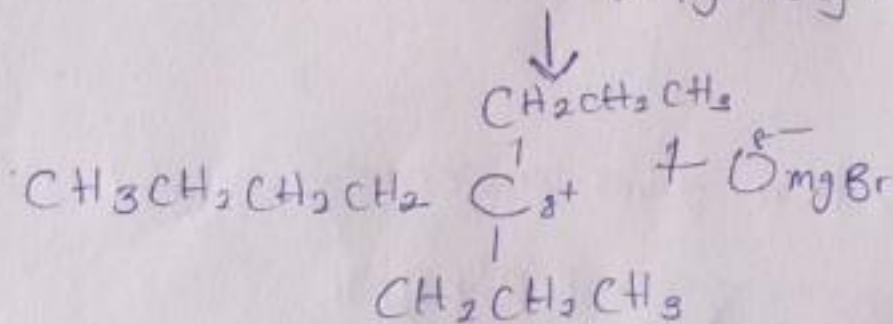 CH2CH2CH3
CH3CH2CH2CH2 C δ+ + Oδ- mgBr
CH2CH2CH3